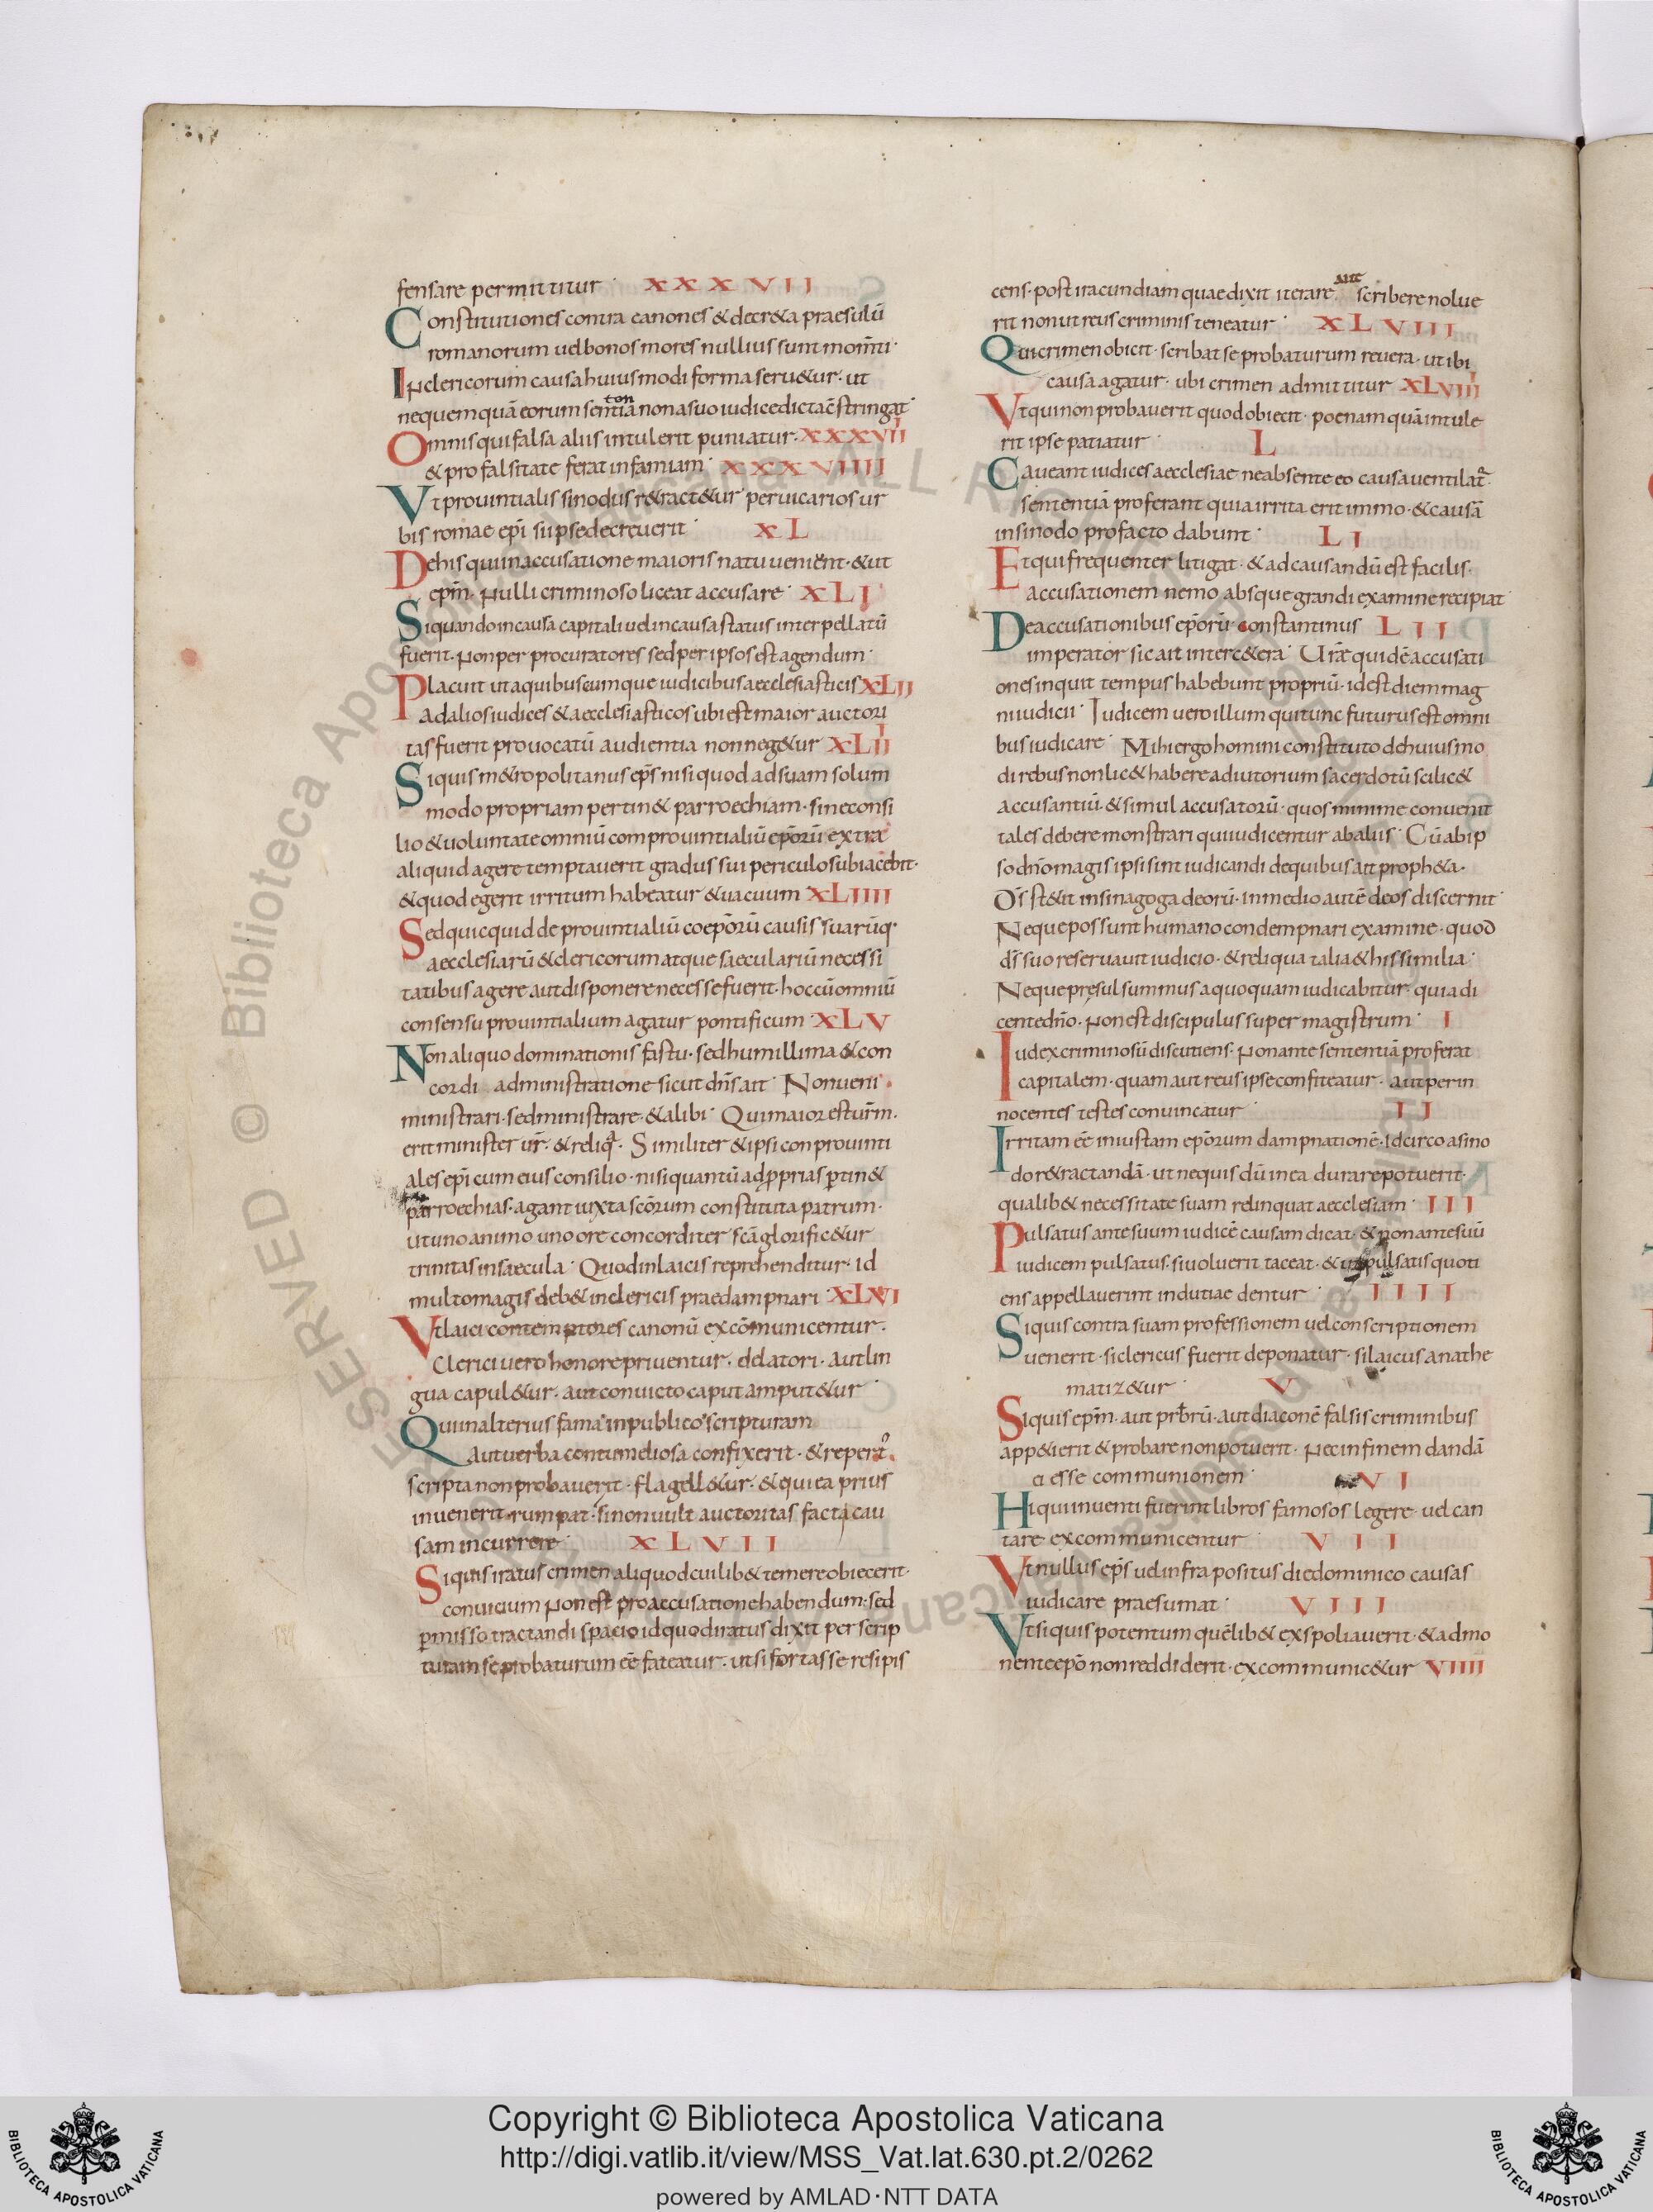 fensare permittitur · XXXVII
Constitutiones contra canones & decr&a praesulū
romanorum uel bonos mores nullius sunt mom̄ti·
In clericorum causa huiusmodi forma seru&ur· ut
nequem quā eorum sentiā non a suo iudice dicta c̄stringat·
Omnis qui falsa aliis intulerit puniatur· XXXVII
& pro falsitate ferat infamiam· XXXVIIII
Vt prouintialis sinodus r&ract&ur per uicarios ur
bis romae ep̄i si ipse decreuerit· XL
De his qui in accusatione maioris natu uenient· & ut
ep̄m· Nulli criminoso liceat accusare· XLI
Si quando in causa capitali uel in causa status interpellatū
fuerit· Non per procuratores sed per ipsos est agendum·
Placuit ut a quibuscumque iudicibus aecclesiasticis XLII
ad alios iudices & aecclesiasticos ubi est maior auctori
tas fuerit prouocatū audientia non neg&ur XLIII
Si quis m&ropolitanus ep̄s nisi quod ad suam solum
modo propriam pertin& parroechiam· sine consi
lio & uoluntate omniū comprouintialiū ep̄orū extra
aliquid agere temptauerit gradus sui periculo subiacebit·
& quod egerit irritum habeatur & uacuum XLIIII
Sed quicquid de prouintialiū coep̄orū causis suarūq·
aecclesiarū & clericorum atque saeculariū necessi
tatibus agere aut disponere necesse fuerit· hoc cū omniū
consensu prouintialium agatur pontificum· XLV
Non aliquo dominationis fastu· sed humillima & con
cordi administratione sicut dn̄s ait· Non ueni
ministrari· sed ministrare· & alibi· Qui maior est ur̄m·
erit minister ur̄· & reliq· Similiter & ipsi conprouinti
ales ep̄i cum eius consilio· nisi quantū ad pprias ptin&
parroechias· agant iuxta sc̄orum constituta patrum·
ut uno animo uno ore concorditer sc̄a glorific&ur
trinitas in saecula· Quod in laicis reprehenditur· id
multo magis deb& in clericis praedampnari· XLVI
Vt laici contemptores canonū excōmunicentur·
Clerici uero honore priuentur· delatori· aut lin
gua capul&ur· aut conuicto caput amput&ur·
Qui in alterius fama in publico scripturam
aut uerba contumeliosa confixerit· & repert
scripta non probauerit· flagell&ur· & qui ea prius
inuenerit· rumpat· si non uult auctoritas facta cau
sam incurrere· XLVII
Si quis iratus crimen aliquod cuilib& temere obiecerit·
conuicium non est pro accusatione habendum· sed
pmisso tractandi spacio id quod iratus dixit per scrip
turam se probaturum eē fateatur· ut si fortasse resipis
cens· post iracundiam quae dixit iterare aut scribere nolue
rit non ut reus criminis teneatur· XLVIII
Qui crimen obicit· scribat se probaturum reuera· ut ibi
causa agatur· ubi crimen admittitur XLVIIII
Vt qui non probauerit quod obiecit· poenam quā intule
rit ipse patiatur· L
Caueant iudices aecclesiae ne absente eo causa uentilat
sententiā proferant quia irrita erit immo· & causā
in sinodo pro facto dabunt· LI
Et qui frequenter litigat· & ad causandū est facilis·
accusationem nemo absque grandi examine recipiat
De accusationibus ep̄orū constantinus LII
imperator sic ait inter c&era· Vr̄ae quidē accusati
ones inquit tempus habebunt propriū· id est diem mag
ni iudicii· Iudicem uero illum qui tunc futurus est omni
bus iudicare· Mihi ergo homini constituto de huiusmo
di rebus non lic& habere adiutorium sacerdotū scilic&
accusantiū· & simul accusatorū· quos minime conuenit
tales debere monstrari qui iudicentur ab aliis· Cū ab ip
so dn̄o magis ipsi sint iudicandi de quibus ait proph&a·
Ds̄ st&it in sinagoga deorū· in medio autē deos discernit·
Neque possunt humano condempnari examine· quod
ds̄ suo reseruauit iudicio· & reliqua talia & his similia·
Neque presul summus a quoquam iudicabitur· quia di
cente dn̄o· Non est discipulus super magistrum· I
Iudex criminosū discutiens· Non ante sententiā proferat
capitalem· quam aut reus ipse confiteatur· aut per in
nocentes testes conuincatur· II
Irritam eē iniustam ep̄orum dampnationē· Idcirco a sino
do r&ractandā· ut nequis dū in ea durare potuerit·
qualib& necessitate suam relinquat aecclesiam· III
Pulsatus ante suum iudicē causam dicat· & non ante suū
iudicem pulsatus· si uoluerit taceat· & ut pulsatis quoti
ens appellauerint indutiae dentur· IIII
Si quis contra suam professionem uel conscriptionem
uenerit· si clericus fuerit deponatur· si laicus anathe
matiz&ur· V
Si quis ep̄m· aut prb̄rū· aut diaconē falsis criminibus
app&ierit & probare non potuerit· Nec in finem dandā
ei esse communionem· VI
Hi qui inuenti fuerint libros famosos legere uel can
tare excommunicentur· VII
Vt nullus ep̄s uel infra positus die dominico causas
iudicare praesumat· VIII
Vt si quis potentum quēlib& exspoliauerit· & admo
nente ep̄o non reddiderit· excommunic&ur VIIII
Copyright © Biblioteca Apostolica Vaticana
http://digi.vatlib.it/view/MSS_Vat.lat.630.pt.2/0262
powered by AMLAD·NTT DATA
BIBLIOTECA APOSTOLICA VATICANA
BIBLIOTECA APOSTOLICA VATICANA